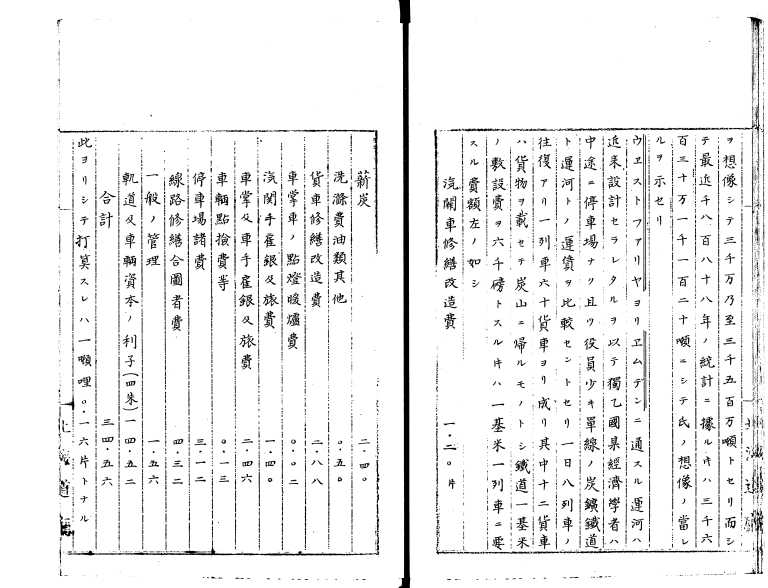 ヲ想像シテ三千万乃至三千五百万噸トセリ而シ
テ最近千八百八十八年ノ統計ニ據ルキハ三千六
百三十万一千一百二十噸ニシテ氏ノ想像ノ當レ
ルヲ示セリ
ウエストファリヤヨリヱムデンニ通スル運河ハ
近来設計セラレタルヲ以テ獨乙國某經濟學者ハ
中途ニ停車場ナク且ツ役員少キ單線ノ炭鑛鐵道
ト運河トノ運賃ヲ比較セントセリ一日八列車ノ
往復アリ一列車六十貨車ヨリ成リ其中十二貨車
ハ貨物ヲ載セテ炭山ニ帰ルモノトシ鐵道一基米
ノ敷設費ヲ六千磅トスルキハ一基米一列車ニ要
スル費額左ノ如シ
汽關車修繕改造費 一・二〇片
薪炭 二・四〇
洗滌費油類其他 〇・五〇
貨車修繕改造費 二・八八
車掌車ノ點燈暖爐費 〇・〇二
汽関手雇銀及旅費 一・四四
車掌及車手雇銀及旅費 二・四六
車輌點撿費等 〇・一三
停車場諸費 三・一二
線路修繕合圖者費 四・三二
一般ノ管理 一・五六
軌道及車輌資本ノ利子(四朱) 一四・五二
合計 三四・五六
此ヨリシテ打算スレハ一噸哩〇・一六片トナル